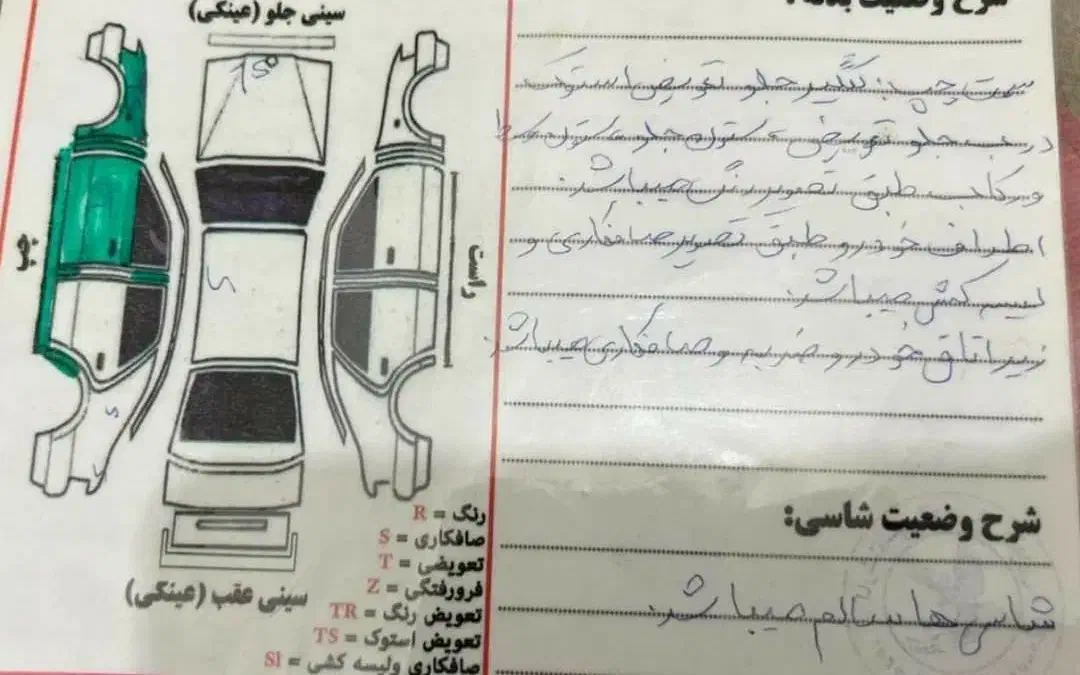 سینی جلو (عینکی)
S
S
S
چپ
راست
سینی عقب (عینکی)
رنگ = R
صافکاری = S
تعویضی = T
فرورفتگی = Z
تعویض رنگ = TR
تعویض استوک = TS
صافکاری ولیسه کشی = Sl
شرح وضعیت بدنه:
سمت چپ: گلگیر جلو تعویض استوک
درب جلو تعویض ستون جلو ستون
و رکاب طبق تصویر رنگ میباشد.
اطراف خودرو طبق تصویر صافکاری و
لیسه کشی میباشد.
زیر اتاق خودرو ضربه و صافکاری میباشد.
شرح وضعیت شاسی:
شاسی ها سالم میباشد.